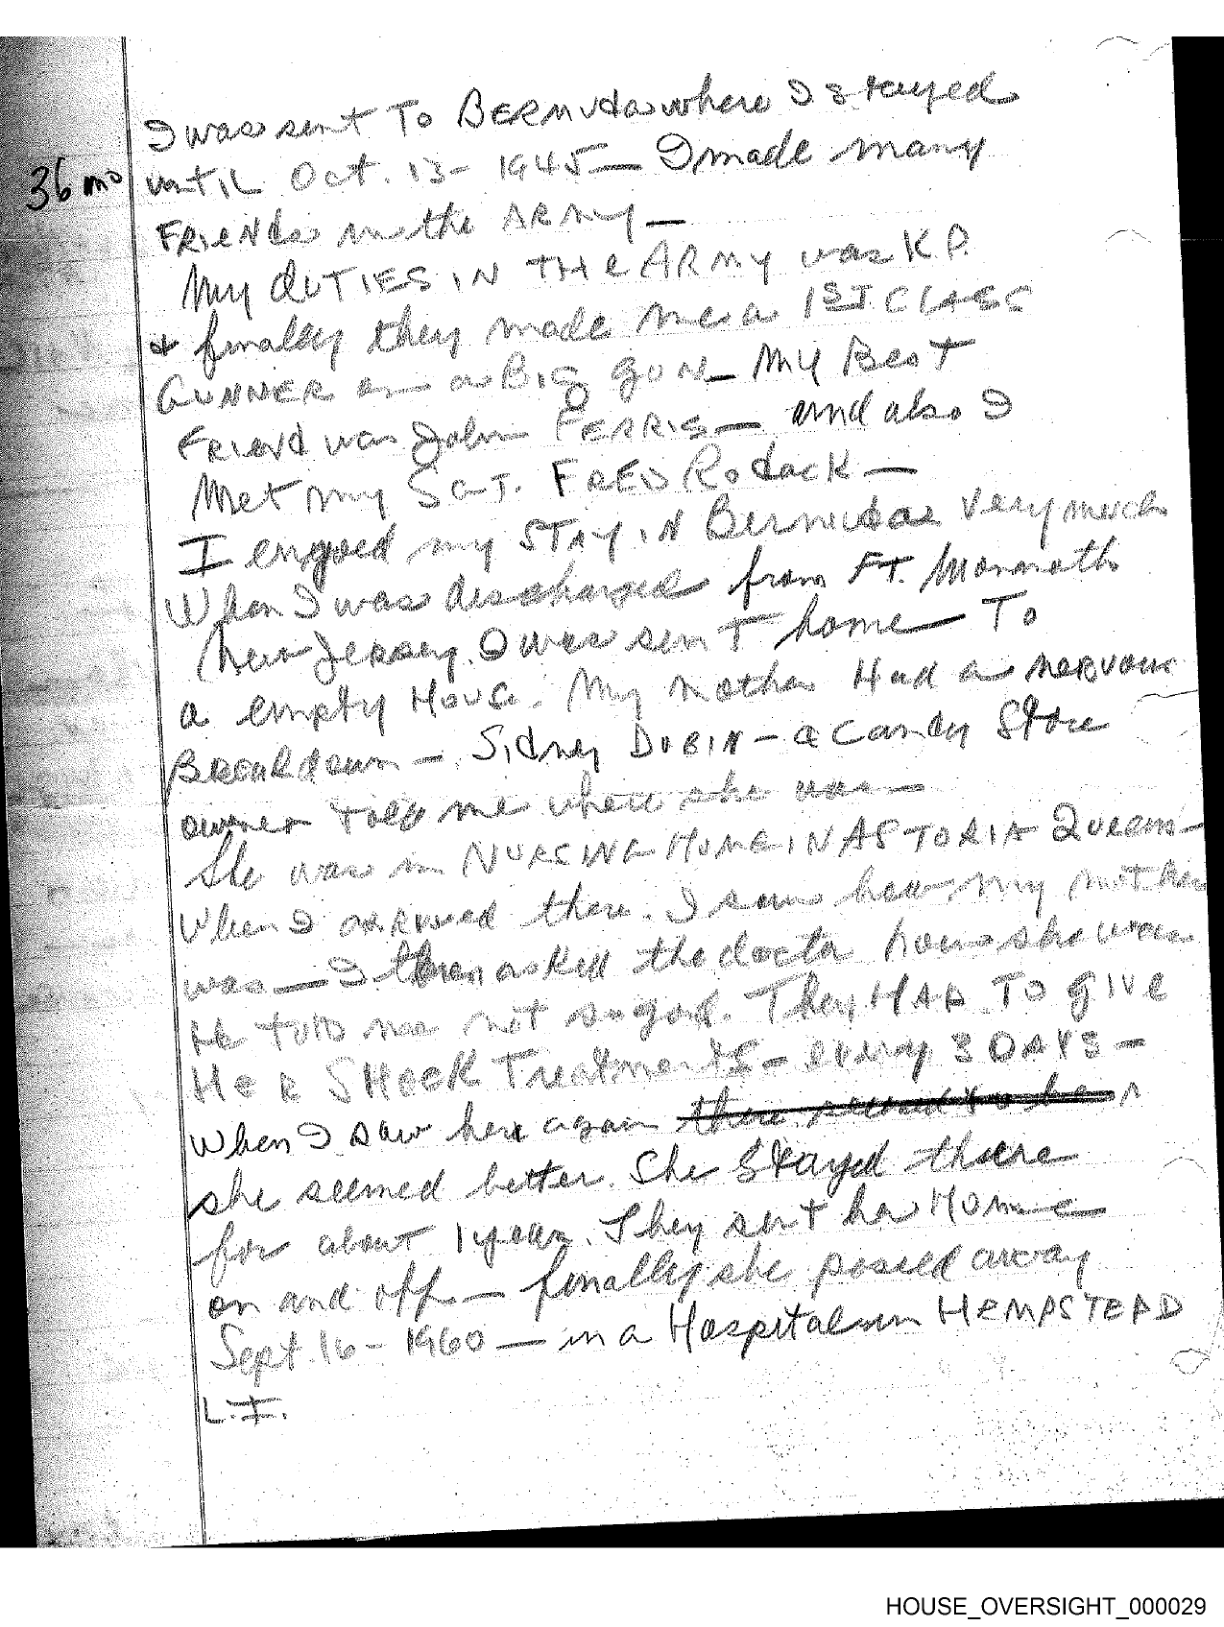 I was sent To BERMUda where I stayed
36 mo
untiL Oct. 13 - 1945 — I made many
FRieNds in the ARMy —
My dUTIES iN THe ARMy was K.P.
& finally they made me a 1ST CLASS
GUNNER on a BIG gUN — My Best
FRiend was John FERRIS — and also I
Met my SGT. FRED Rodack —
I enjoyed my STAy iN Bermudas very much
When I was discharged from FT. Monmoth
New Jersey. I was senT home To
a empty House. My mother Had a neRvous
BReakdown — Sidney DUBIN — a Candy Store
owner told me where she was —
She was in NURSING HOME iN ASTORIA Queens —
When I arrived there. I saw how my mother
was — I then asked the doctor how she was
He told me not so good. They HAD TO giVe
HeR SHOCK Treatments — every 3 DAYS —
When I saw her again there seemed to be
she seemed better. She Stayed there
for about 1 year. They sent her Home
on and off — finally she passed away
Sept. 16 - 1960 — in a Hospital in HEMPSTEAD
L.I.
HOUSE_OVERSIGHT_000029